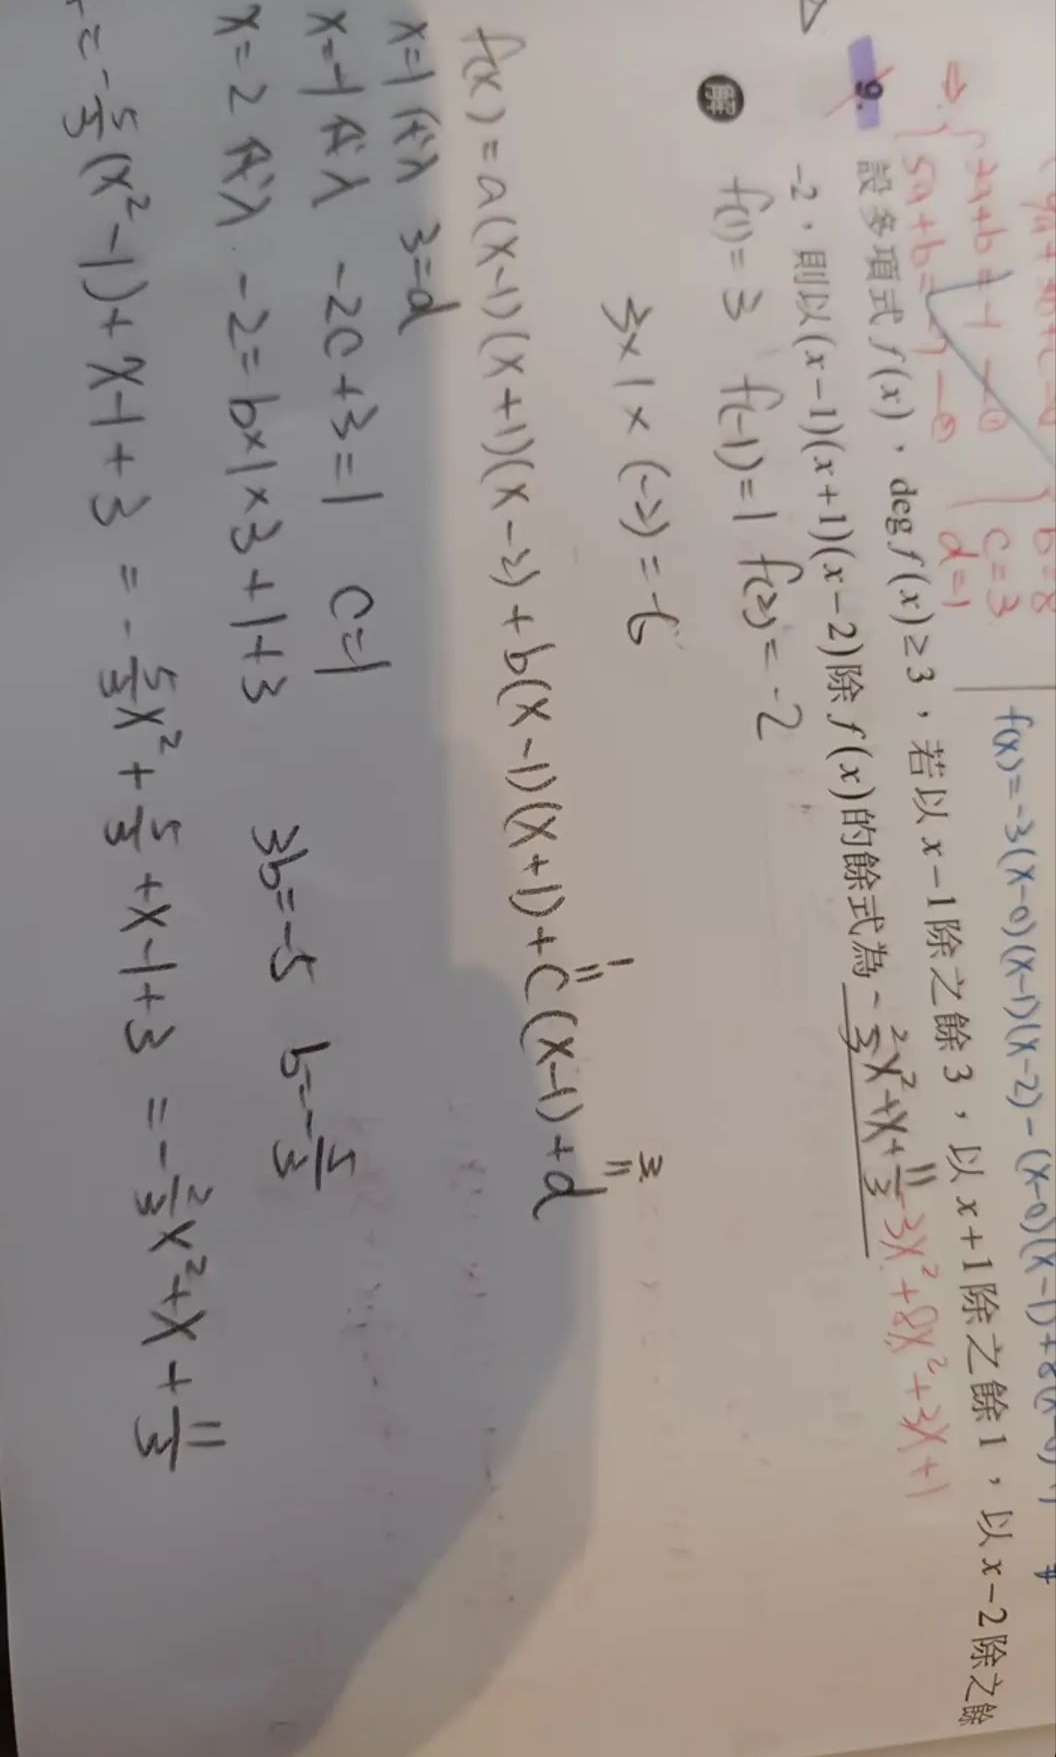 5a+b=
b=8
c=3
d=1
f(x)=-3(x-0)(x-1)(x-2)-(x-0)(x-1)+8(x-0)
9. 設多項式 f(x),deg f(x)≥3,若以 x-1 除之餘 3,以 x+1 除之餘 1,以 x-2 除之餘
-2,則以 (x-1)(x+1)(x-2) 除 f(x) 的餘式為 -2/3x²+x+11/3 -3x²+8x²+3x+1
解 f(1)=3 f(-1)=1 f(2)=-2
3×1×(-2)=-6
1 3
f(x)=a(x-1)(x+1)(x-2)+b(x-1)(x+1)+c(x-1)+d
x=1代入 3=d
x=-1代入 -2c+3=1 c=1
x=2代入 -2=b×1×3+1+3 3b=-5 b=-5/3
=-5/3(x²-1)+x-1+3 =-5/3x²+5/3+x-1+3 =-2/3x²+x+11/3